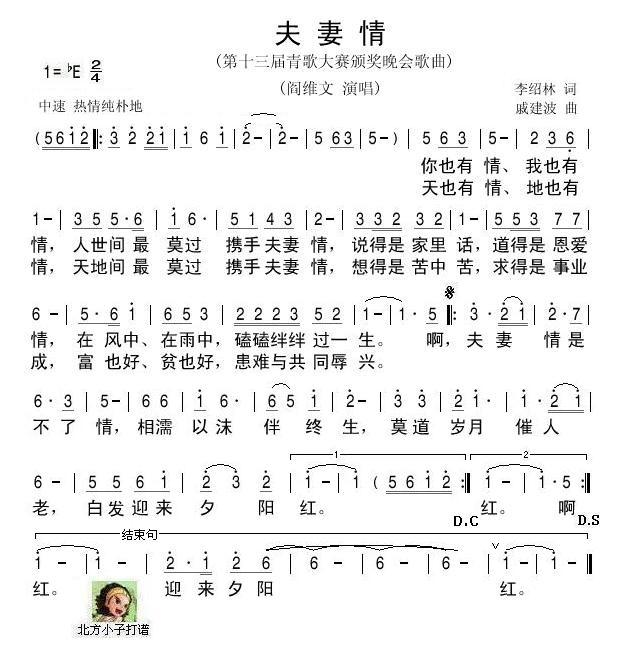 夫妻情
(第十三届青歌大赛颁奖晚会歌曲)
1=♭E 2/4
(阎维文 演唱)
李绍林 词
中速 热情纯朴地
戚建波 曲
(5 6 1 2 𝄆 3· 2 2 1 | 1 6· | 1 6 1 | 2 - | 2 - ) | 5 6 3 | 5 - | 2 3 6 |
你也有 情、 我也有
天也有 情、 地也有
1 - | 3 5 5· 6 | 1 6· | 3 5 5 | 5 1 4 3 | 2 - | 3 3 3 | 6 6 6 | 5 - | 5 5 3 | 7 7 |
情, 人世间 最 莫过 携手 夫妻 情, 说得是 家里 话, 道得是 恩爱
情, 天地间 最 莫过 携手 夫妻 情, 想得是 苦中 苦, 求得是 事业
6 - | 5· 6 1 | 6 5 3 | 2 2 2 3 | 5 2 | 1 - | 1· 5 𝄆 3· 2 1 | 2· 7 |
情, 在 风中、 在雨中, 磕磕绊绊 过一 生。 啊, 夫 妻 情是
成, 富 也好、 贫也好, 患难与共 同辱 兴。
6· 3 | 2 - | 2 2 2 | 1· 3 | 6 5 1 | 2 - | 3 3 | 2 2 1 | 1· 2 1 |
不 了 情, 相濡 以 沫 伴 终 生, 莫道 岁月 催 人
6 - | 5 5 5 6 1 | 2 3 2 | 1 - | 1 - ( 5 6 1 2 𝄇 1 - | 1· 5 𝄇
老, 白发 迎来 夕 阳 红。 红。 啊
D.C
D.S
结束句
1 - | 1 - | 2· 1 | 2 6 | 6 - | 6 - | 6 - | 1 - | 1 - |
红。 迎 来 夕阳 红。
北方小子打谱